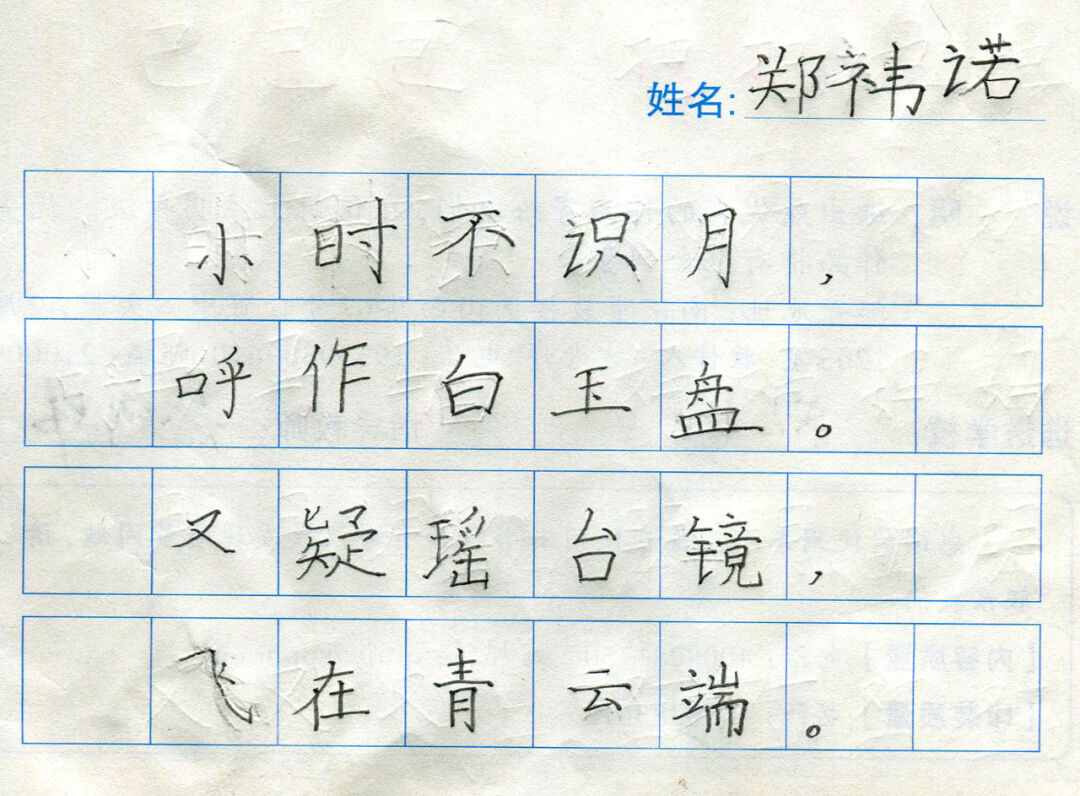 姓名:郑祎诺
小时不识月，
呼作白玉盘。
又疑瑶台镜，
飞在青云端。